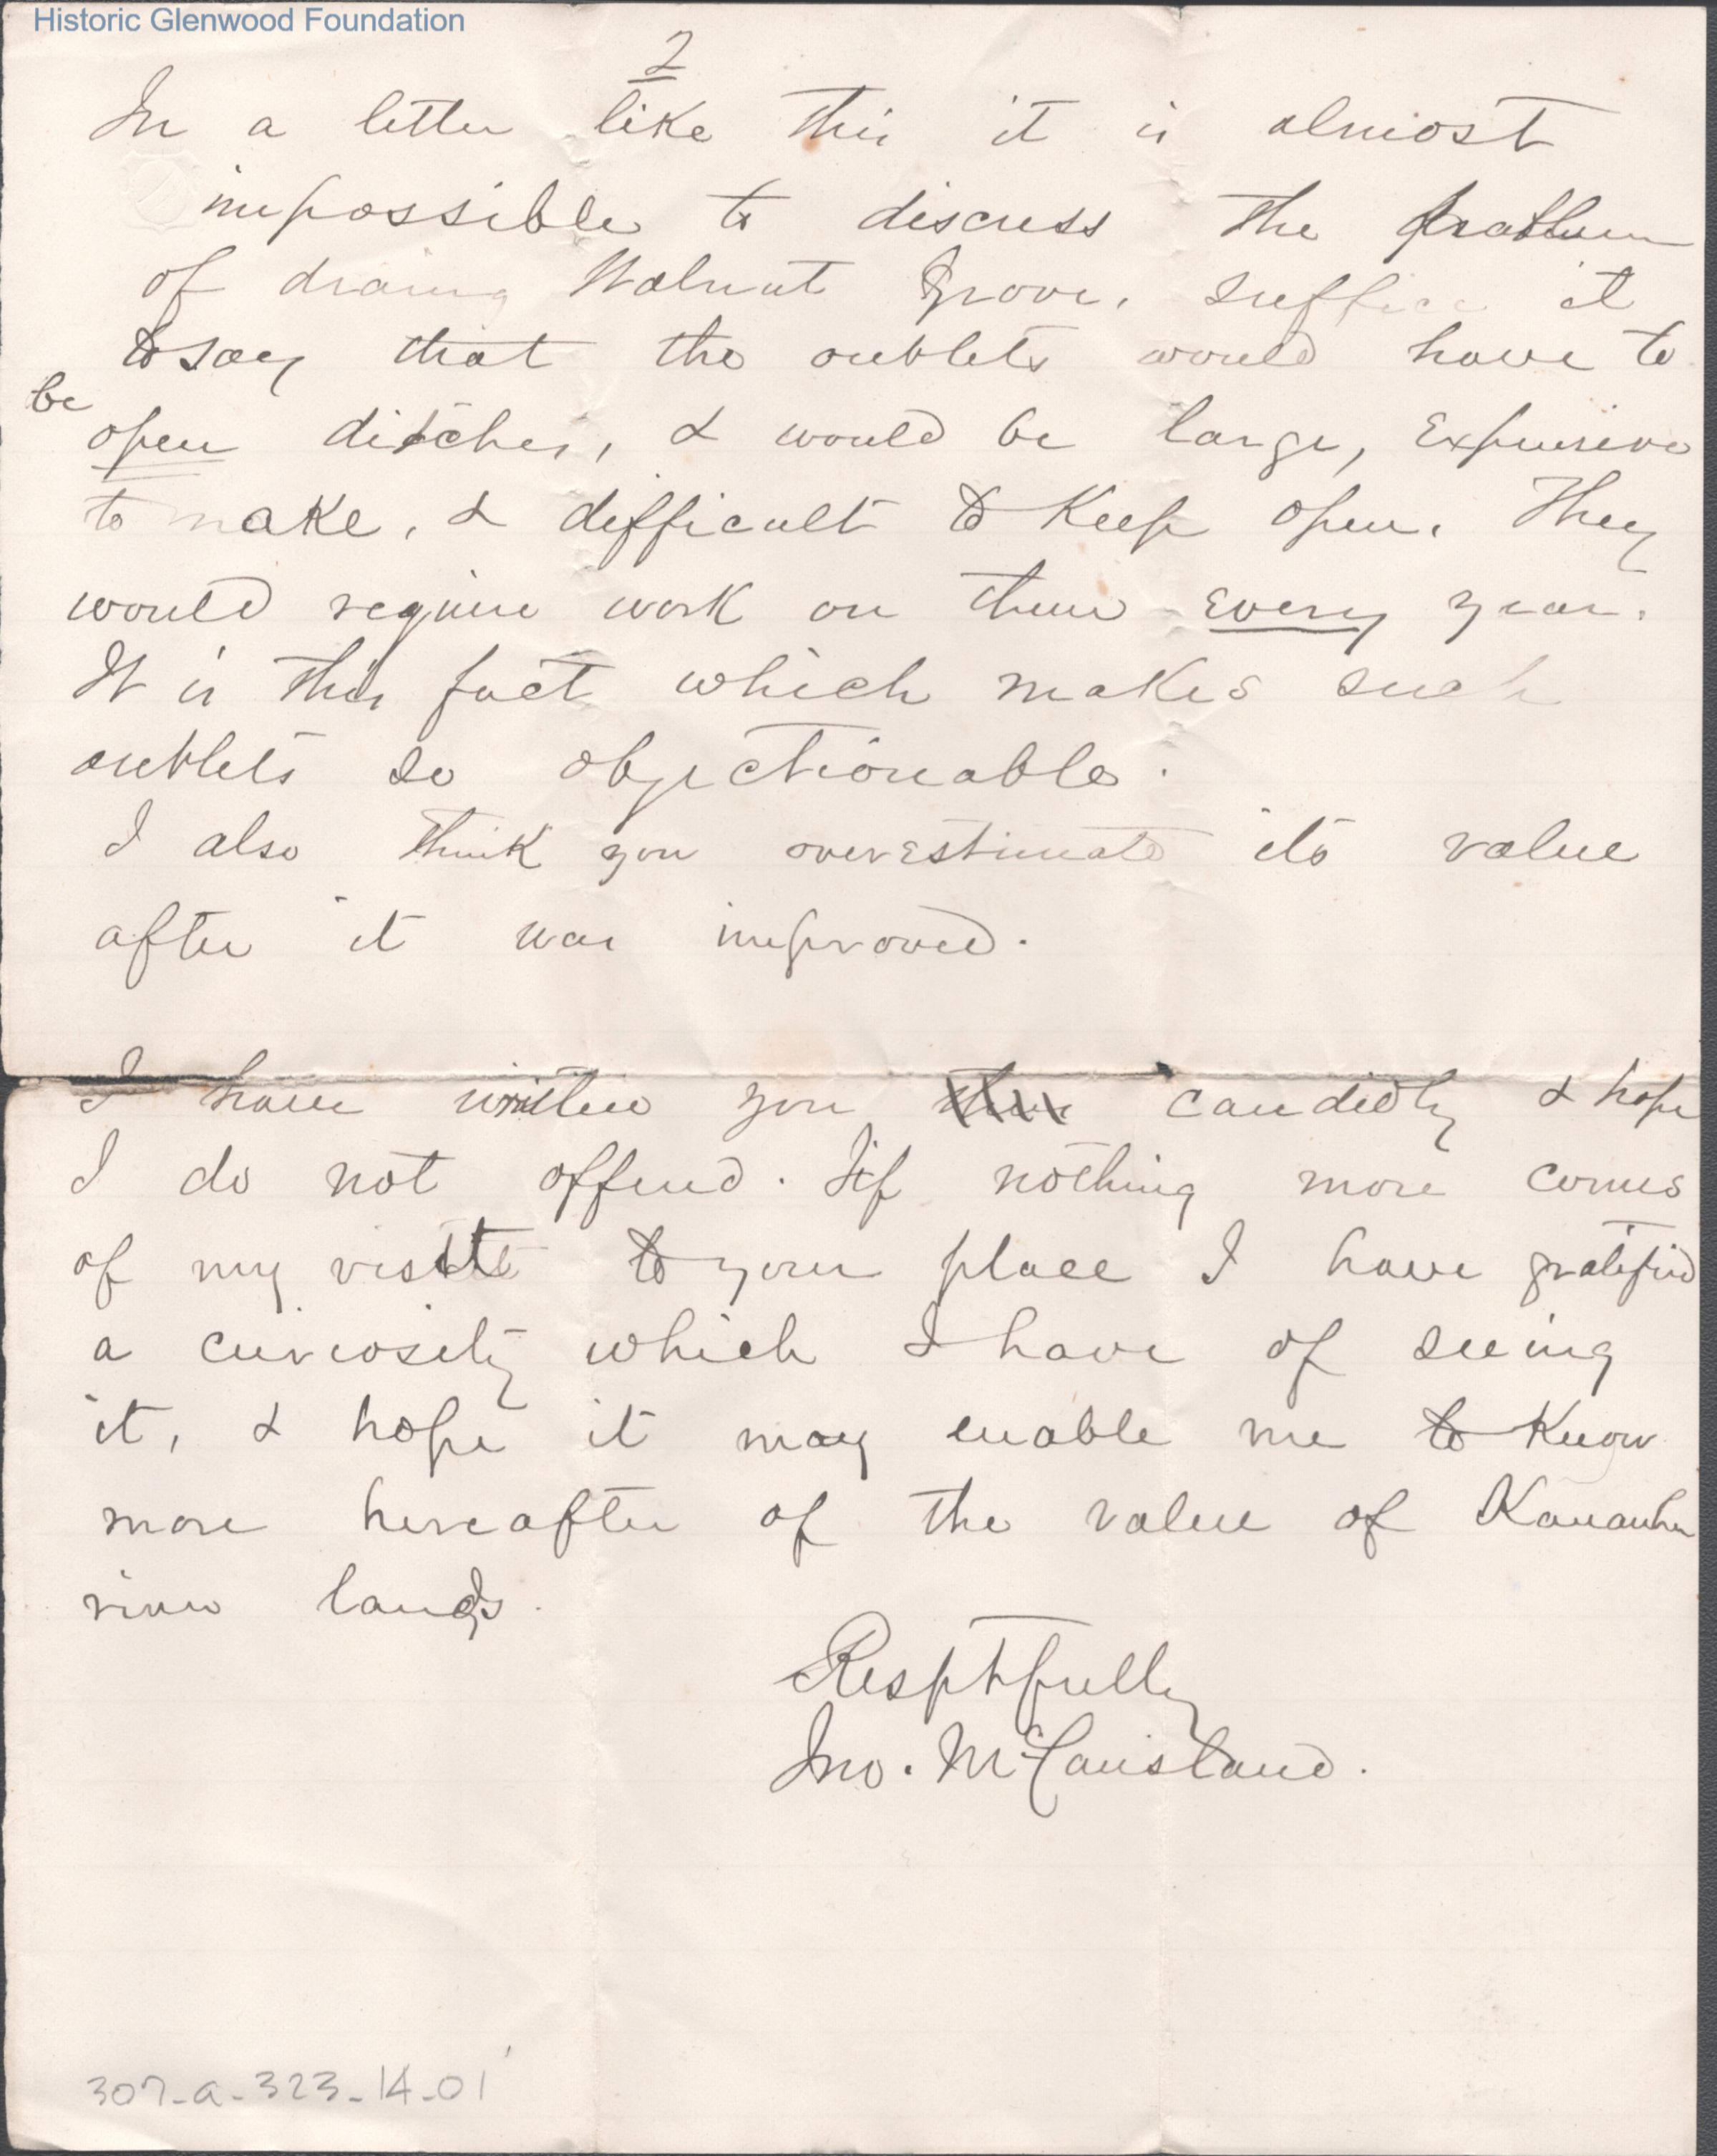 Historic Glenwood Foundation
2
In a letter like this it is almost
impossible to discuss the problem
of draing Walnut Grove. suffice it
to say that the outlets would have to
be
open ditches, & would be large, Expensive
to make, & difficult to Keep open. They
would require work on them every year.
It is this fact which makes such
outlets so objectionable.
I also think you overestimate its value
after it was improved.
I have written you candidly & hope
I do not offend. If nothing more comes
of my visit to your place I have gratified
a curiosity which I have of seeing
it, & hope it may enable me to Know
more hereafter of the value of Kanawha
river lands.
Resptfully
Jno. McCausland.
307-a-323-14-01